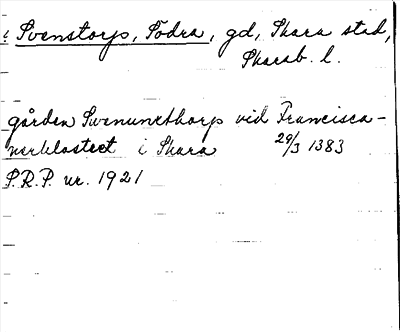 i Svenstorp, Södra, gd, Skara stad,
Skarab. l.
gården Swenunethorp vid Francisca-
nerklostret i Skara 29/3 1383
S.R.P. nr. 1921